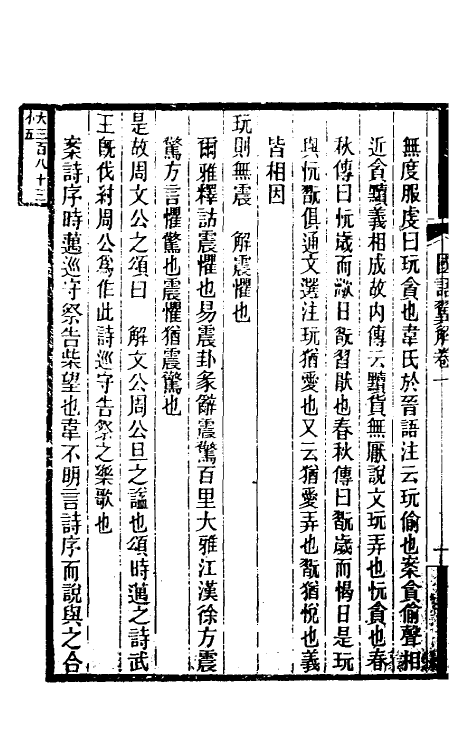 國語翼解卷一
無度服虔曰玩貪也韋氏於晉語注云玩偷也案貪偷聲相
近貪黷義相成故內傳云黷貨無厭說文玩弄也忨貪也春
秋傳曰忨歲而㵣日翫習猒也春秋傳曰翫歲而愒日是玩
與忨翫俱通文選注玩猶愛也又云猶愛弄也翫猶悅也義
皆相因
玩則無震　解震懼也
爾雅釋詁震懼也易震卦彖辭震驚百里大雅江漢徐方震
驚方言懼驚也震懼猶震驚也
是故周文公之頌曰　解文公周公旦之謚也頌時邁之詩武
王旣伐紂周公爲作此詩巡守告祭之樂歌也
案詩序時邁巡守祭告柴望也韋不明言詩序而說與之合
大三百八十三
小五